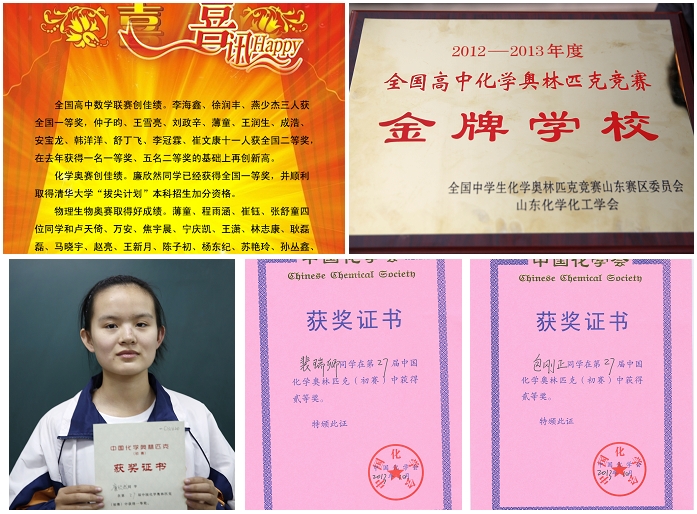 喜 喜讯Happy
全国高中数学联赛创佳绩。李海鑫、徐润丰、燕少杰三人获
全国一等奖，仲子昀、王雪亮、刘政辛、薄童、王润生、成浩、
安宝龙、韩洋洋、舒丁飞、李冠霖、崔文康十一人获全国二等奖，
在去年获得一名一等奖、五名二等奖的基础上再创新高。
化学奥赛创佳绩。廉欣然同学已经获得全国一等奖，并顺利
取得清华大学“拔尖计划”本科招生加分资格。
物理生物奥赛取得好成绩。薄童、程雨涵、崔钰、张舒童四
位同学和卢天倚、万安、焦宇晨、宁庆凯、王潇、林志康、耿磊
磊、马晓宇、赵亮、王新月、陈子初、杨东纪、苏艳玲、孙丛鑫、
2012—2013年度
全国高中化学奥林匹克竞赛
金牌学校
全国中学生化学奥林匹克竞赛山东赛区委员会
山东化学化工学会
中国化学奥林匹克
（初赛）
获奖证书
中国化学会
Chinese Chemical Society
获奖证书
裴瑞卿同学在第27届中国
化学奥林匹克（初赛）中获得
贰等奖。
特颁此证
中国化学会
Chinese Chemical Society
获奖证书
包刚正同学在第27届中国
化学奥林匹克（初赛）中获得
贰等奖。
特颁此证